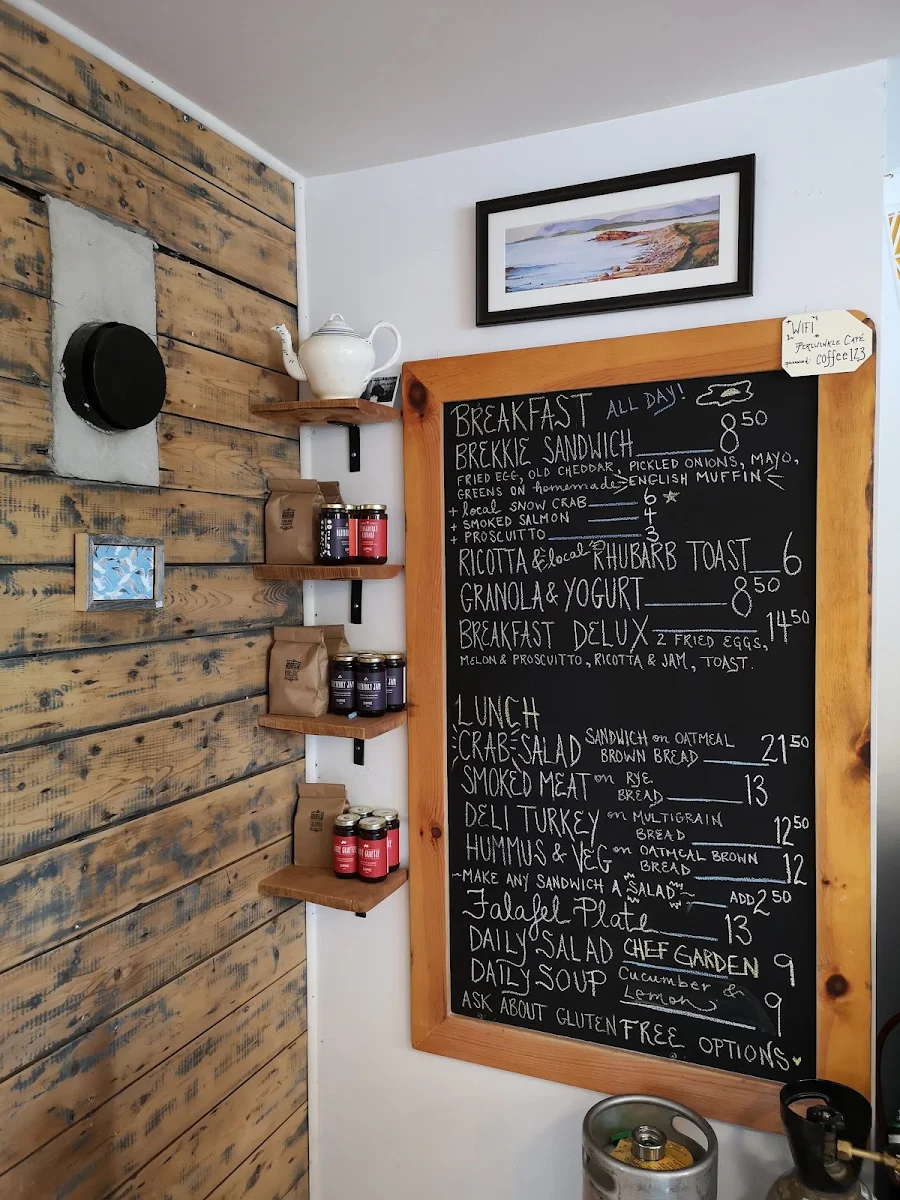 "WIFI"
PERIWINKLE CAFÉ
password: coffee123
BREAKFAST ALL DAY!
BREKKIE SANDWICH 8.50
FRIED EGG, OLD CHEDDAR, PICKLED ONIONS, MAYO,
GREENS ON homemade ENGLISH MUFFIN
+ local SNOW CRAB 6
+ SMOKED SALMON 4
+ PROSCUITTO 3
RICOTTA & local RHUBARB TOAST 6
GRANOLA & YOGURT 8.50
BREAKFAST DELUX 2 FRIED EGGS, 14.50
MELON & PROSCUITTO, RICOTTA & JAM, TOAST.
LUNCH
CRAB SALAD SANDWICH on OATMEAL BROWN BREAD 21.50
SMOKED MEAT on RYE BREAD 13
DELI TURKEY on MULTIGRAIN BREAD 12.50
HUMMUS & VEG on OATMEAL BROWN BREAD 12
~MAKE ANY SANDWICH A SALAD~ ADD 2.50
Falafel Plate 13
DAILY SALAD CHEF GARDEN 9
DAILY SOUP Cucumber & Lemon 9
ASK ABOUT GLUTEN FREE OPTIONS